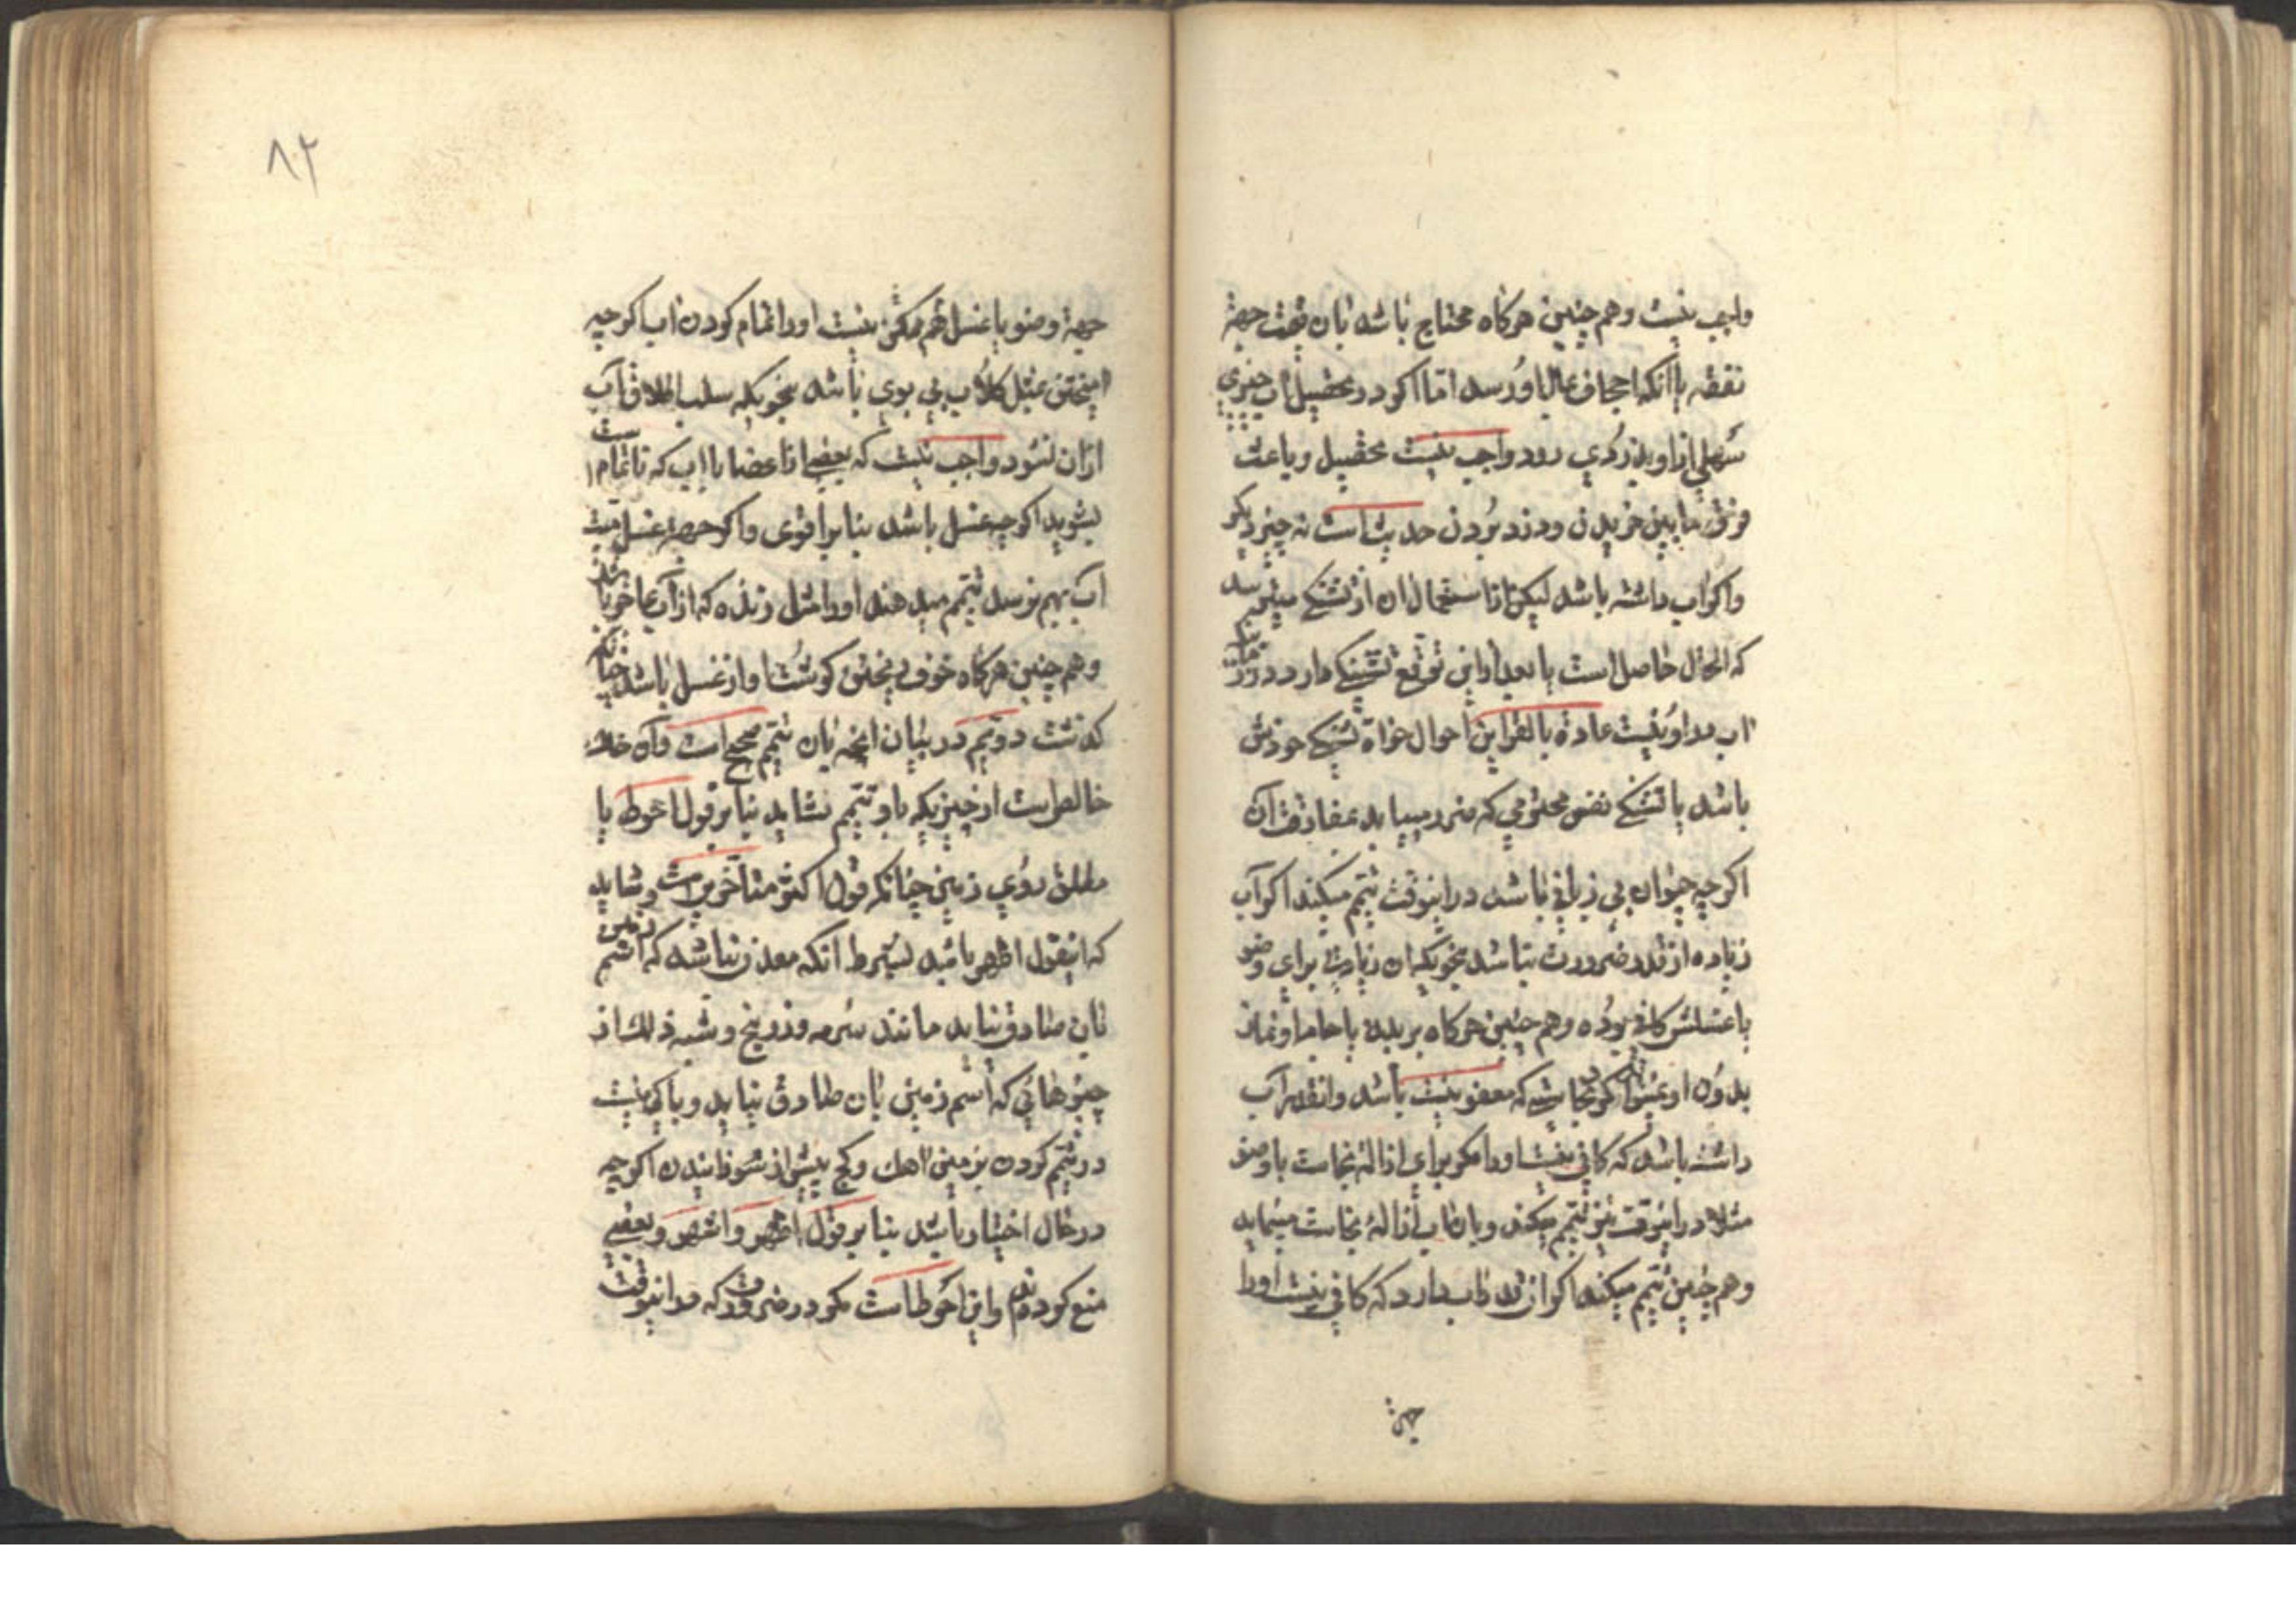 واجب نیست وهم چنین هرکاه محتاج باشد بان قیمت جهة
نفقه یا انکه اجحاف بمال او رسد اما اکر در تحصیل اب چیزی
سهلی از او بدزدی رود واجب نیست تحصیل وباعث
فرق مابین خریدن ودزد بردن حدیث است نه چیز دیکر
واکر اب داشته باشد لیکن از استعمال ان از تشنکی میترسد
که الحال حاصل است یا بعد از این توقع تشنکی دارد در
اب مر او نیست عادة یا بالقراین احوال خواه تشنکی خودش
باشد یا تشنکی نفس محترمی که ضرر مییابد بمفارقت آن
اکرچه حیوان بی زبانی باشد در اینوقت تیمم میکند اکر آب
زیاده از قدر ضرورت نباشد بنحویکه ان زیادتی برای وضو
یا غسلش کافی بوده وهم چنین هرکاه بر بدن یا جامه او نماز
بدون او نجاستی که معفو نیست باشد وانقدر آب
داشته باشد که کافی نیست اورا مکر برای ازالهٔ نجاست یا وضو
مثلا در اینوقت نیز تیمم میکند وبان اب ازالهٔ نجاست مینماید
وهم چنین تیمم میکند اکر انقدر اب دارد که کافی نیست اورا
جهة
۸۲
جهة وضو یا غسل هم ممکن نیست اورا تمام کردن اب اکرچه
امیختن بمثل کلاب بی بوی باشد بنحویکه سلب اطلاق آب
ازان نشود وواجب نیست که بعضی از اعضا با اب که ناتمام است
بشوید اکرچه غسل باشد بنا بر اقوی واکر جهة غسل میت
آب بهم نرسد تیمم میدهند اورا مثل زنده که از آب عاجز باشد
وهم چنین هرکاه خوف ریختن کوشت او از غسل باشد چنانکه
کذشت دویم در بیان انچه بان تیمم صحیح است وآن خاک
خالص است از چیزیکه باو تیمم نشاید بنا بر قول احوط یا
مطلق روی زمین چنانکه قول اکثر متاخرین است وشاید
که اینقول اظهر باشد بشرط انکه معدن نباشد که اسم زمین
بان صادق نیاید مانند سرمه وزرنیخ وشبه ذلک از
چیزهائی که اسم زمین بان صادق نیاید وباکی نیست
در تیمم کردن بزمین اهک وکچ پیش از سوزانیدن اکرچه
در حال اختیار باشد بنا بر قول اظهر واشهر وبعضی
منع کرده‌اند واین احوط است مکر در ضرورت که در اینوقت